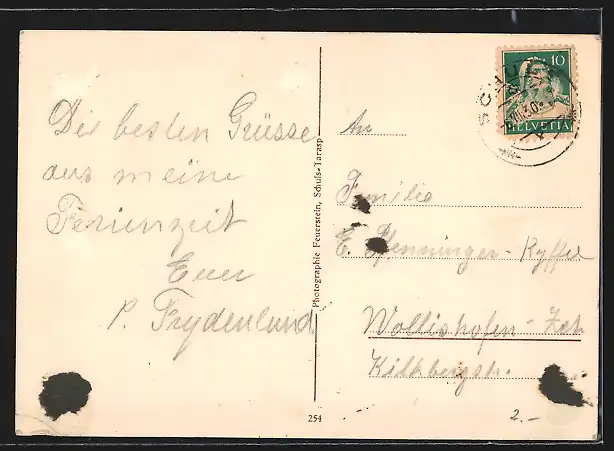 Die besten Grüsse
aus meine
Ferienzeit
Euer
P. Frydenlund
Photographie Feuerstein, Schuls-Tarasp
254
10
HELVETIA
SCHULS
An
Familie
E. Pfenninger-Kyffer
Wollishofen-Zch
Kilchbergstr.
2.-